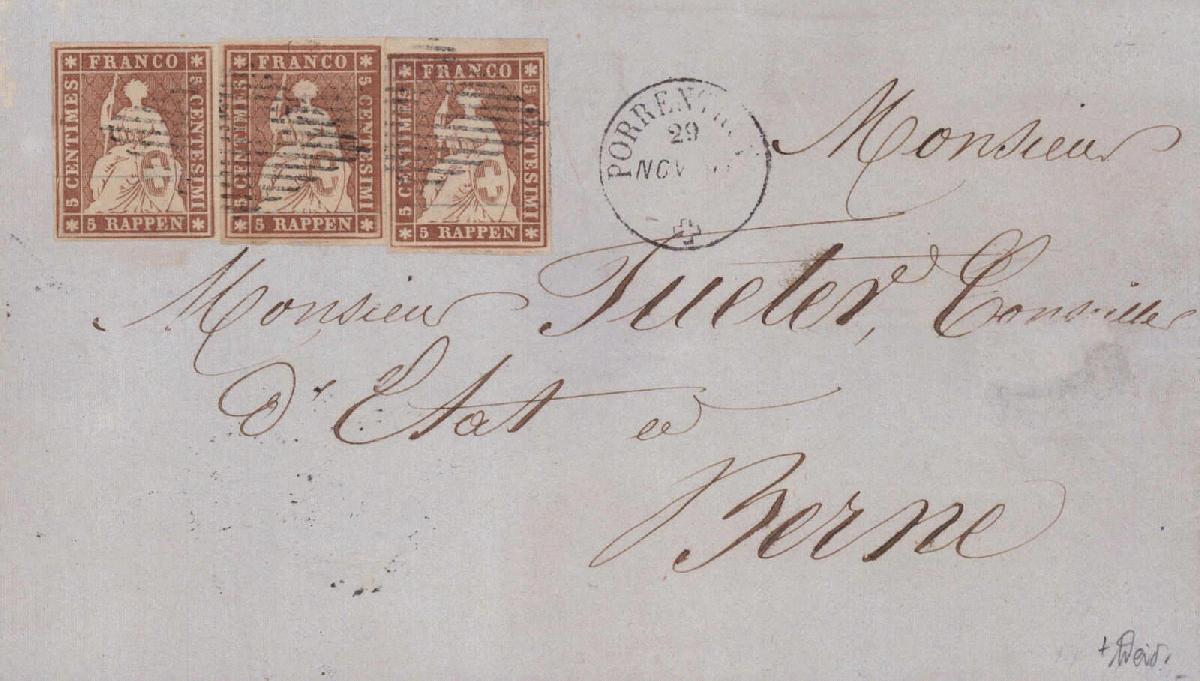 FRANCO
5 CENTIMES
5 CENTESIMI
5 RAPPEN
FRANCO
5 CENTIMES
5 CENTESIMI
5 RAPPEN
FRANCO
5 CENTIMES
5 CENTESIMI
5 RAPPEN
29
NOV
Monsieur
Monsieur Fueter, Conseiller
d'Etat à
Berne